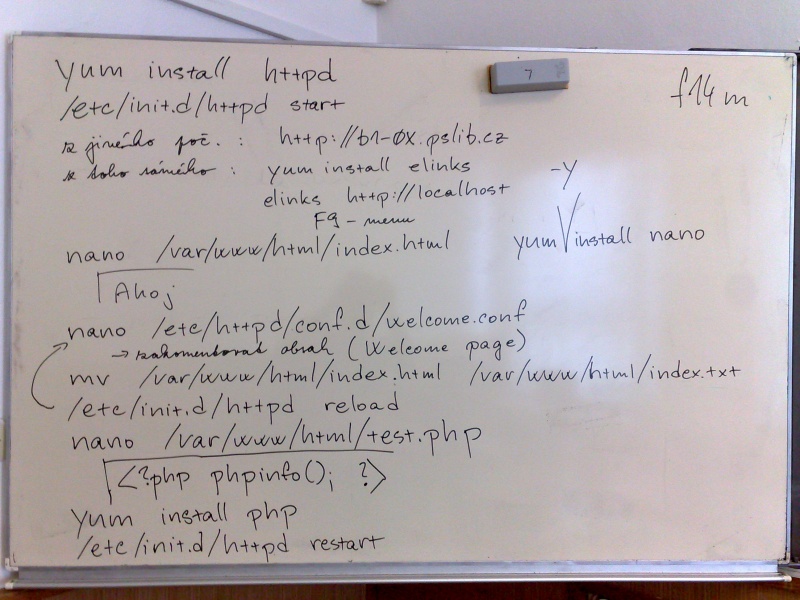 yum install httpd
/etc/init.d/httpd start
f14m
7
z jiného poč. : http://b1-0x.pslib.cz
z toho samého : yum install elinks
elinks http://localhost
F9 - menu
-y
nano /var/www/html/index.html
yum install nano
Ahoj
nano /etc/httpd/conf.d/welcome.conf
→ zakomentovat obsah (Welcome page)
mv /var/www/html/index.html /var/www/html/index.txt
/etc/init.d/httpd reload
nano /var/www/html/test.php
<?php phpinfo(); ?>
yum install php
/etc/init.d/httpd restart